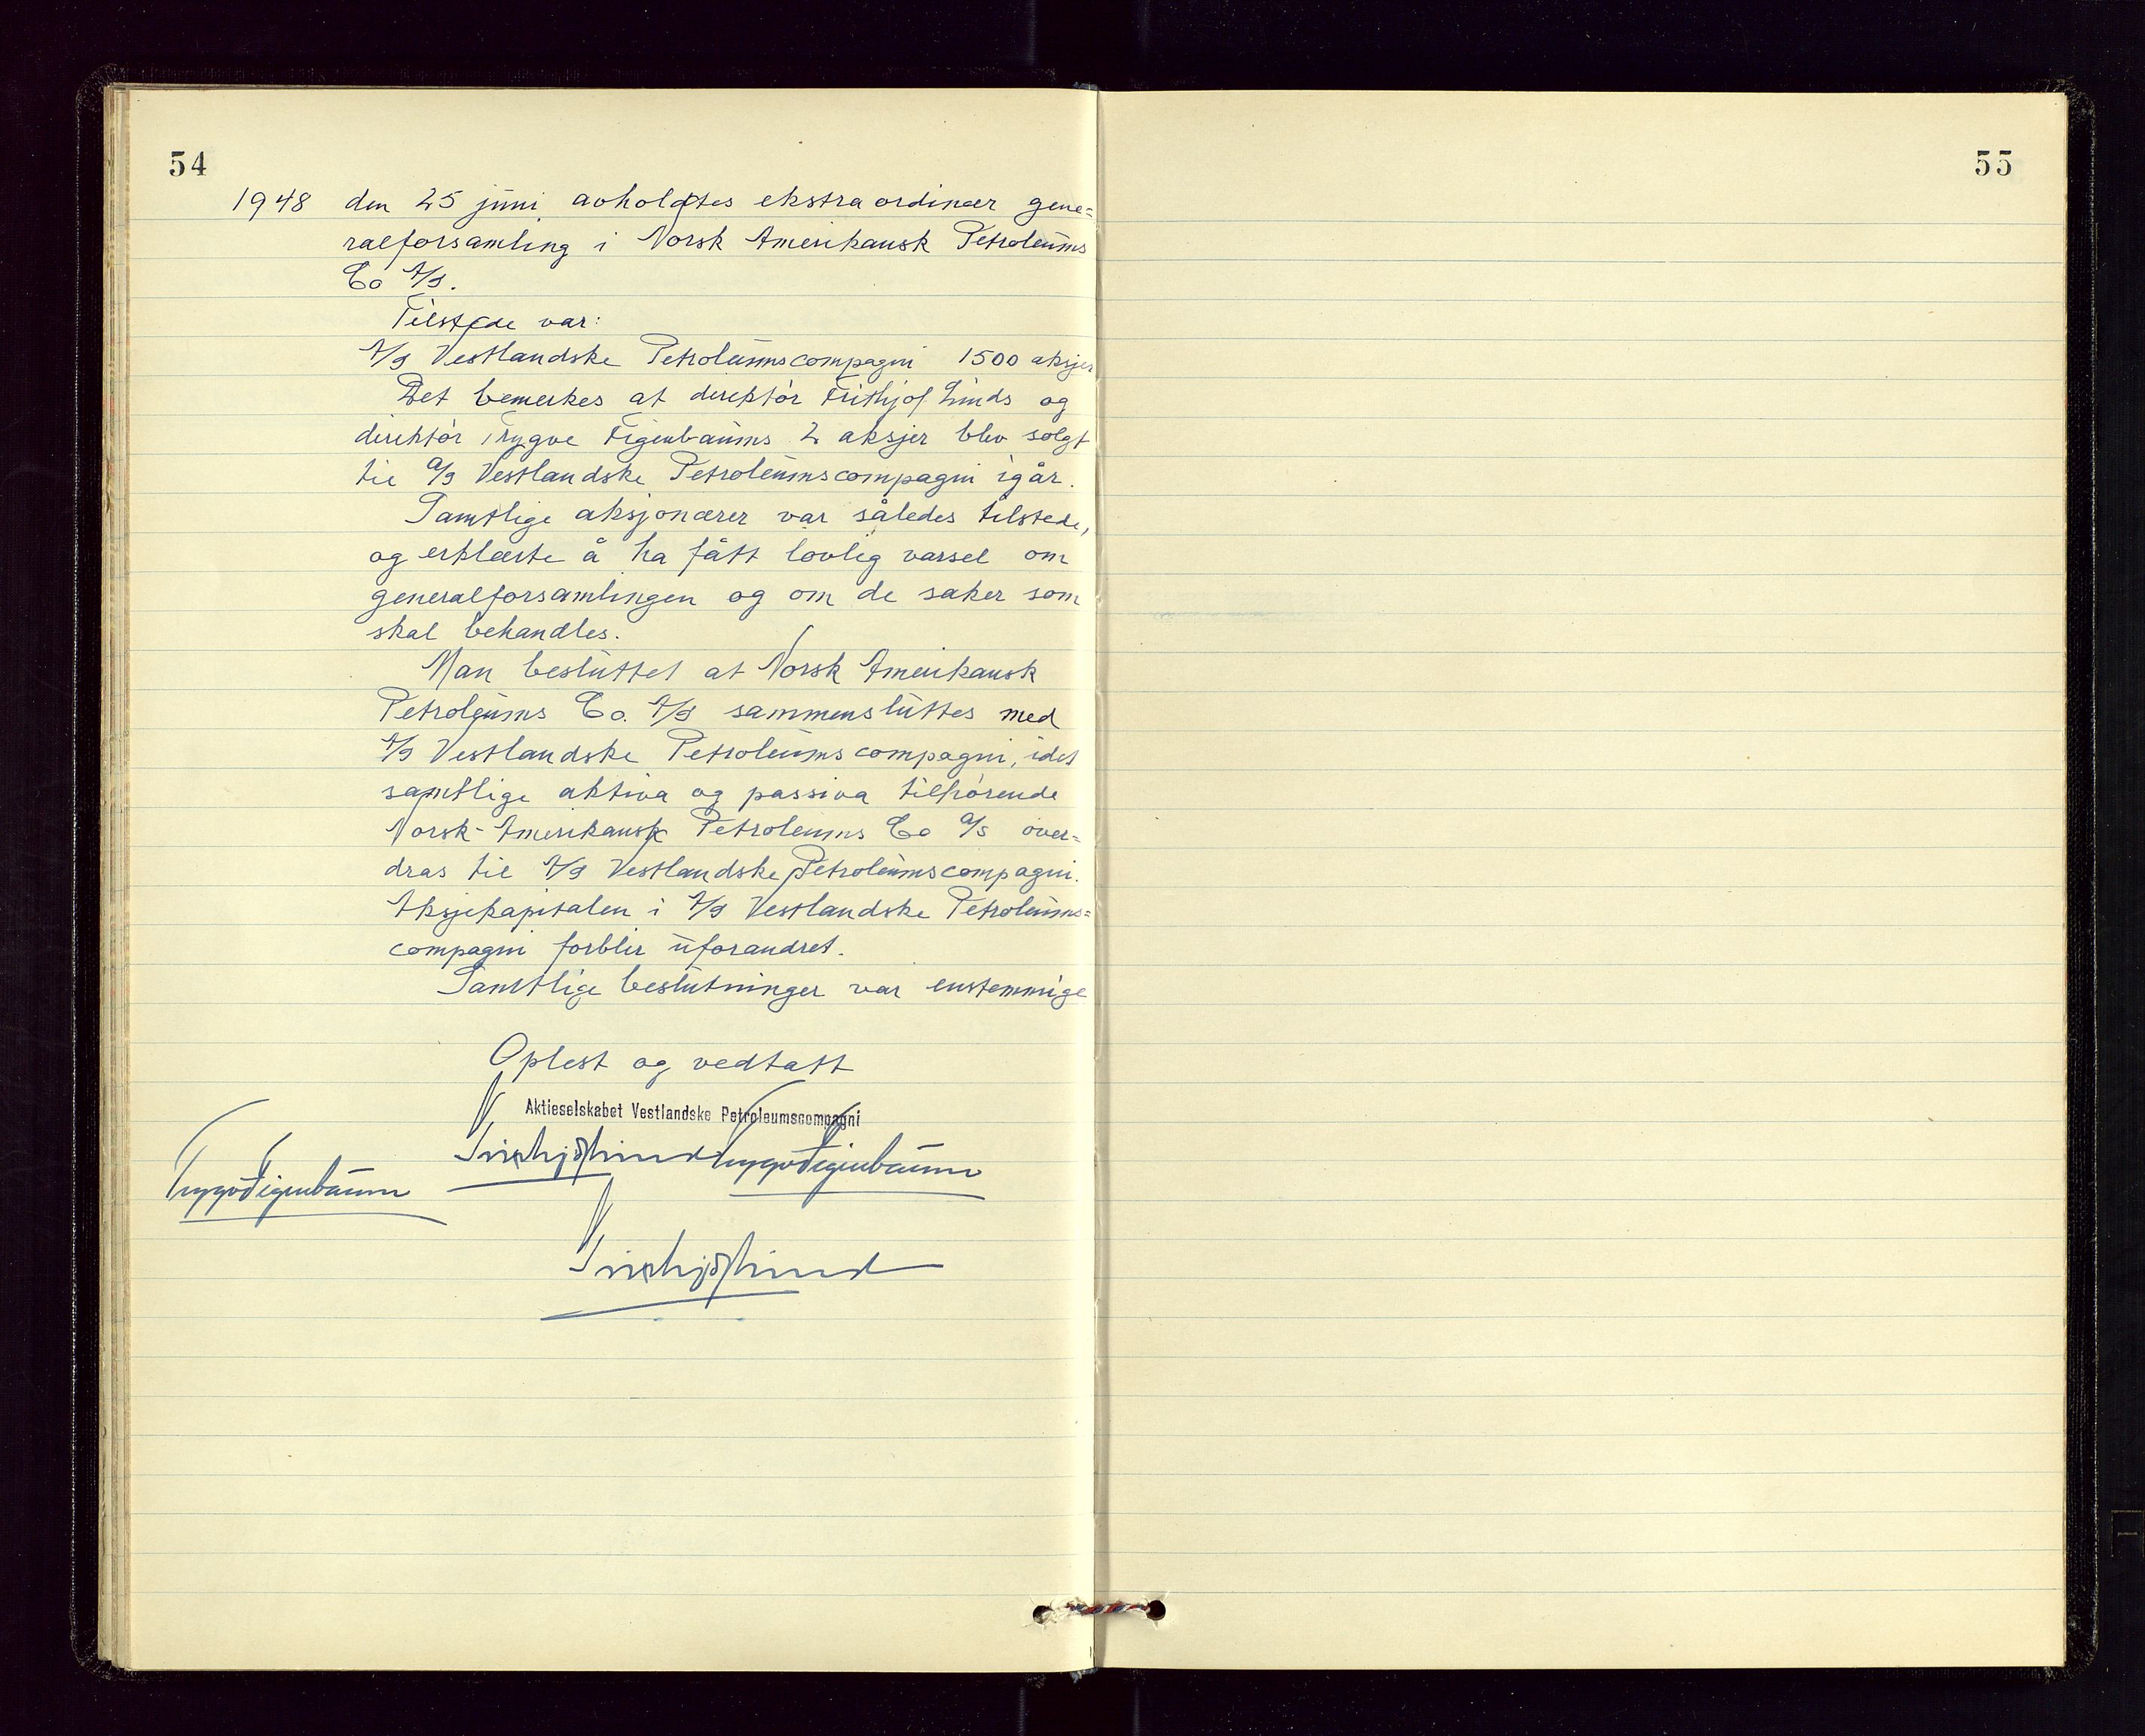 54
1948 den 25 juni avholdtes ekstraordinær gene=
ralforsamling i Norsk Amerikansk Petroleums
Co A/S.
Tilstede var:
A/S Vestlandske Petroleumscompagni 1500 aksjer
Det bemerkes at direktör Frithjof Linds og
direktör Trygve Figenbaums 2 aksjer blev solgt
til A/S Vestlandske Petroleumscompagni igår.
Samtlige aksjonærer var således tilstede,
og erklærte å ha fått lovlig varsel om
generalforsamlingen og om de saker som
skal behandles.
Man besluttet at Norsk Amerikansk
Petroleums Co. A/S sammensluttes med
A/S Vestlandske Petroleumscompagni, idet
samtlige aktiva og passiva tilhörende
Norsk-Amerikansk Petroleums Co A/S over=
dras til A/S Vestlandske Petroleumscompagni.
Aksjekapitalen i A/S Vestlandske Petroleums=
compagni forblir uforandret.
Samtlige beslutninger var enstemmige
Oplest og vedtatt
Aktieselskabet Vestlandske Petroleumscompagni
Frithjof Lind Trygve Figenbaum
Trygve Figenbaum
Frithjof Lind
55